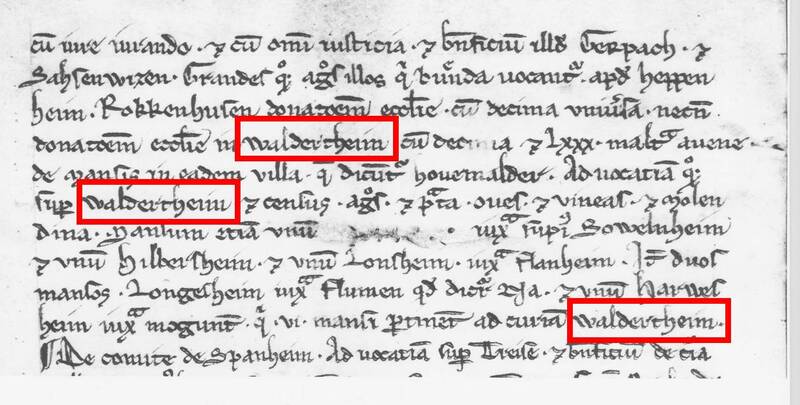 cū iure iurando · ⁊ cū omī iusticia · ⁊ bn̄ficiū illđ Gerpach · ⁊
Sahsenwizen · Grandes qͦꝫ agͦs illos q̄ biūnda uocantᷣ · apđ heppen
heim · Rokkenhusen donatōem eccl̄ie · cū decima vniūsa · necñ
donatōem eccl̄ie in waldertheim cū decima ⁊ lxxx · maltᵃ auene
de mansis in eadem villa · q̄ dicūtᷣ hovemalder · Aduocatiā qͦꝫ
sup̄ waldertheim ⁊ census · agͦs · ⁊ pᵃta · oues · ⁊ vineas · ⁊ molen
dina · Mansum etiā vnū iuxᵃ Sowelnheim
⁊ vnū hilbersheim · ⁊ vnū Lonsheim · iuxᵃ flanheim · Itē duos
mansos · Longesheim iuxᵃ flumen qđ dicitᷣ · ⁊ vnū harwes
heim iuxᵃ mogunt̄ · q̄ · vi · mansi ꝑtinent ad curiā waldertheim ·
¶ De comite de Spanheim · Aduocatiā sup̄ Treise · ⁊ bn̄ficiū de